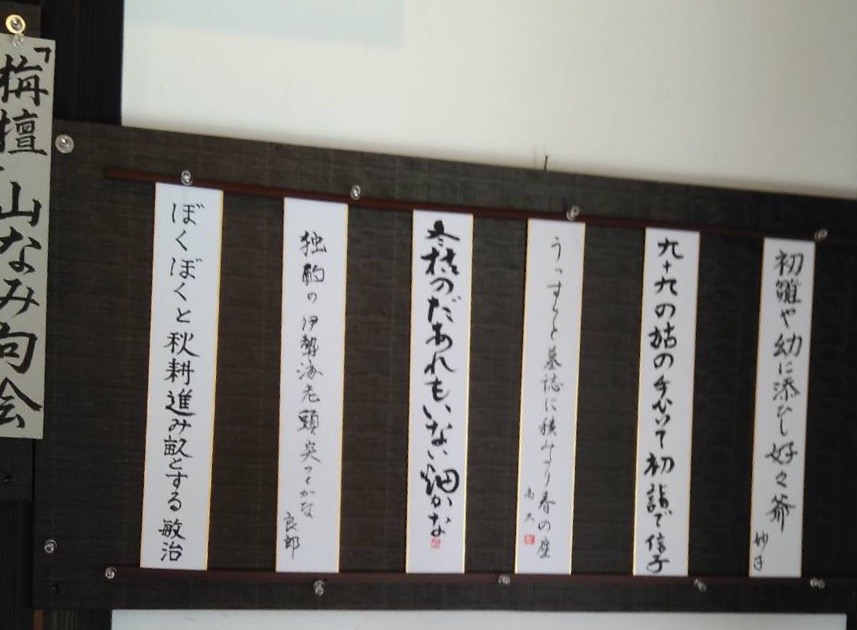 初雛や幼に添ひし好々爺 妙子
九十九の姑の手ひいて初詣で 信子
うっすらと墓誌に積もり春の座
冬枯のだあれもいない畑かな
独酌の伊勢海老頭突つくかな 良郎
ぼくぼくと秋耕進み畝とする 敏治
「栴檀」山なみ句会